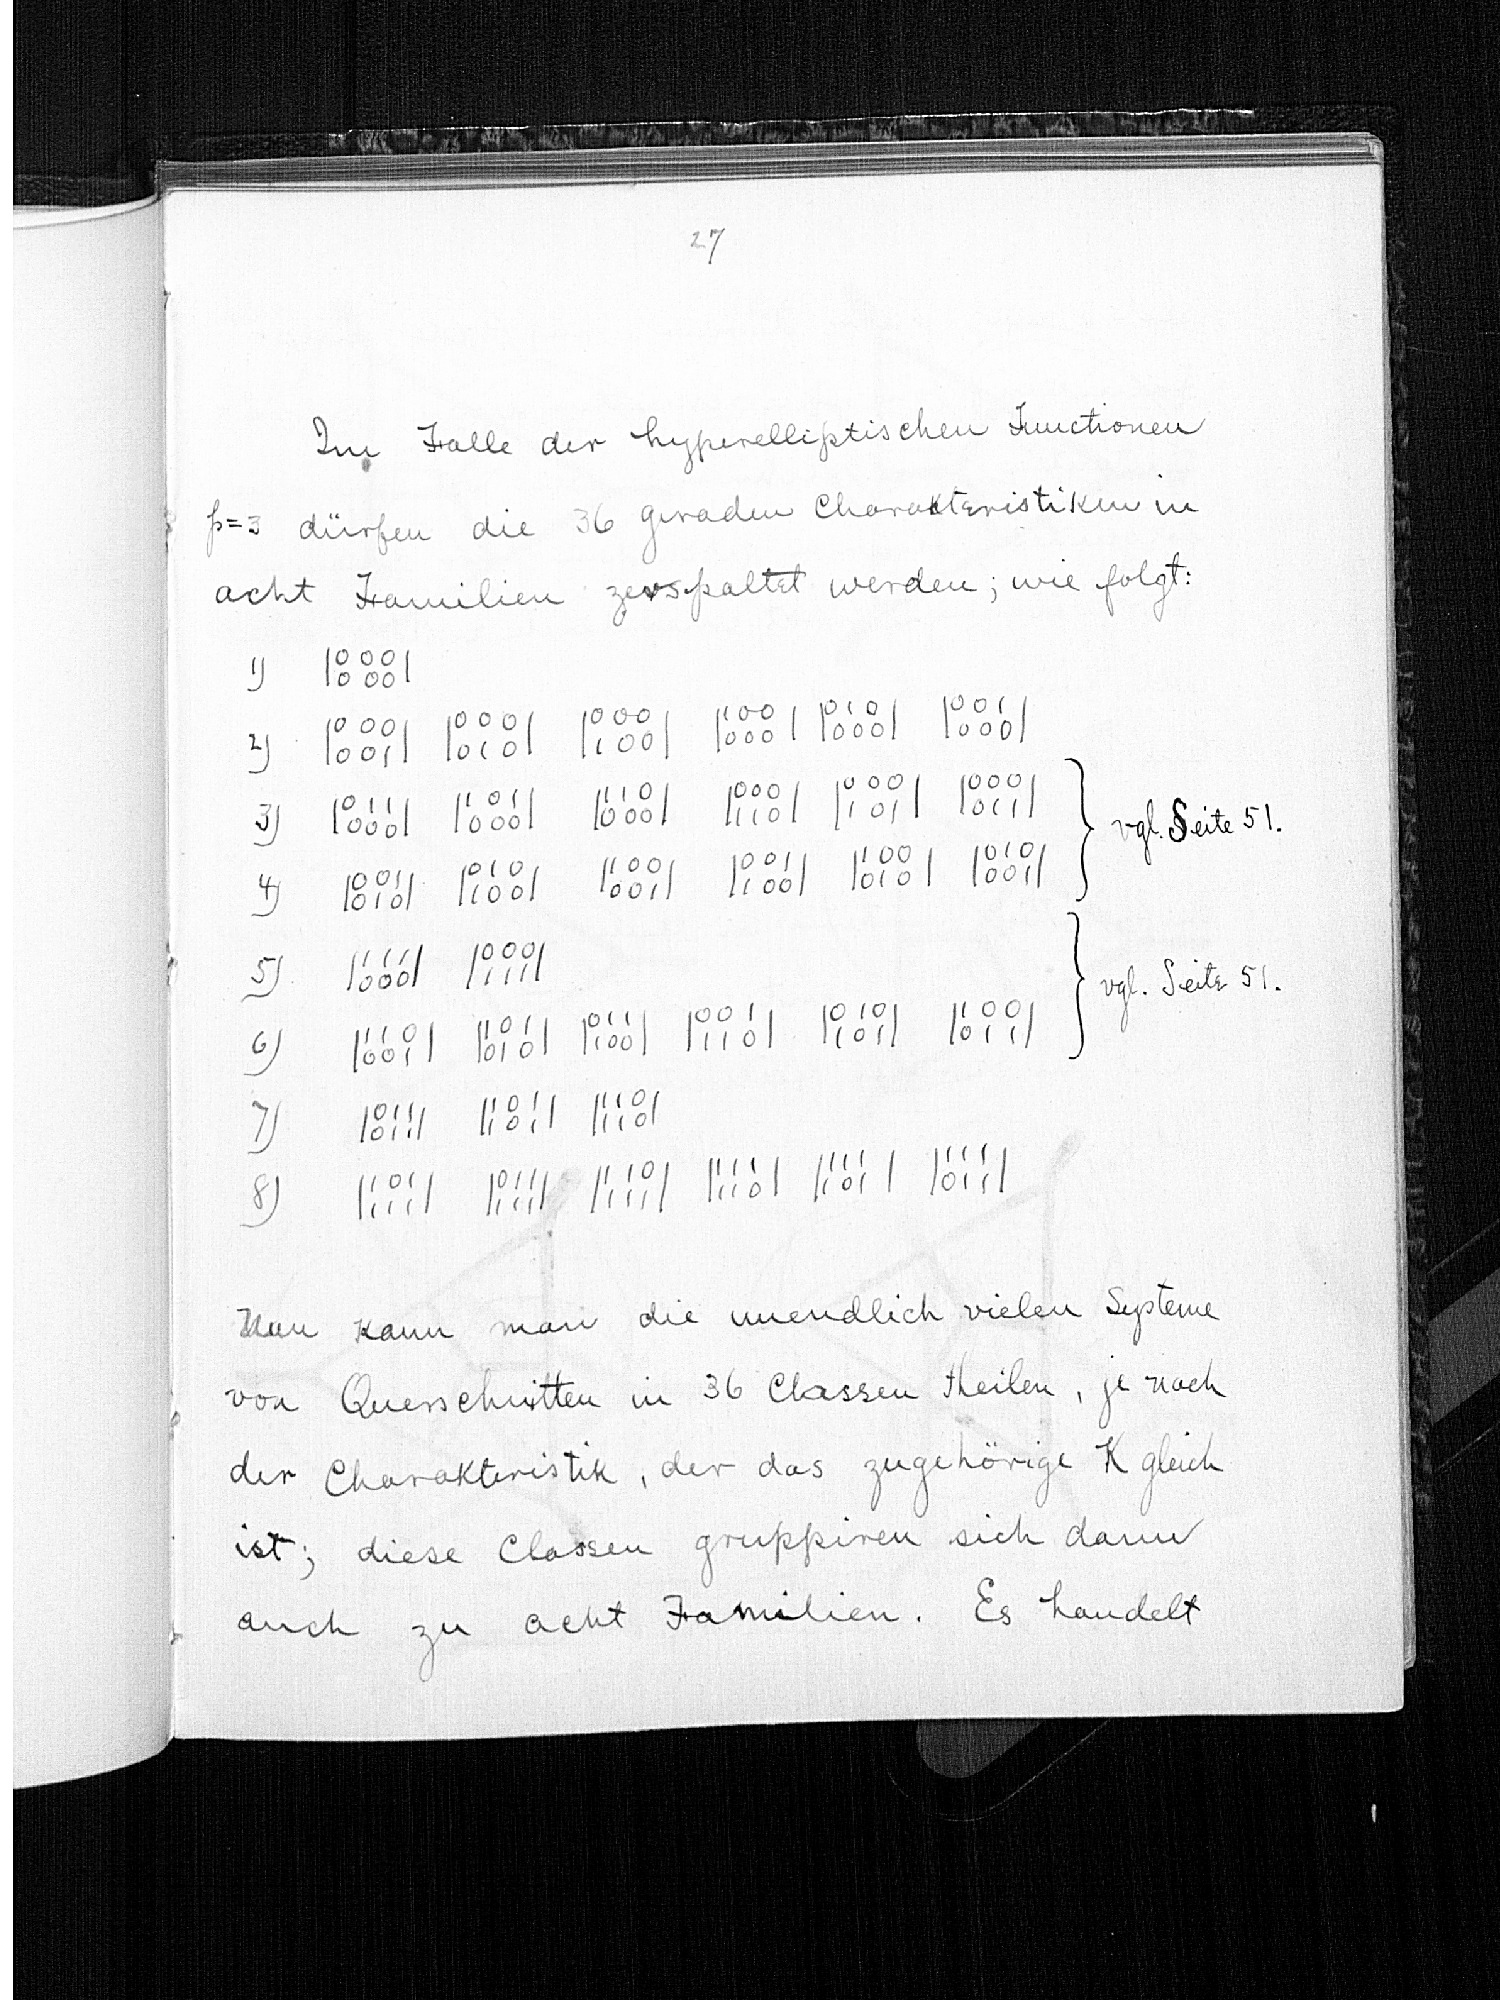 27
Im Falle der hyperelliptischen Functionen
p=3 dürfen die 36 geraden Charakteristiken in
acht Familien zerspaltet werden; wie folgt:
1) |000/000|
2) |000/001| |000/010| |000/100| |100/000| |010/000| |001/000|
3) |011/000| |101/000| |110/000| |000/110| |000/101| |000/011| } vgl. Seite 51.
4) |001/010| |010/100| |100/001| |001/100| |100/010| |010/001|
5) |111/000| |000/111| } vgl. Seite 51.
6) |110/001| |101/010| |011/100| |001/110| |010/101| |100/011|
7) |011/011| |101/101| |110/110|
8) |101/111| |011/111| |110/111| |111/110| |111/101| |111/011|
Nun kann man die unendlich vielen Systeme
von Querschnitten in 36 Classen theilen, je nach
der Charakteristik, der das zugehörige K gleich
ist; diese Classen gruppiren sich dann
auch zu acht Familien. Es handelt